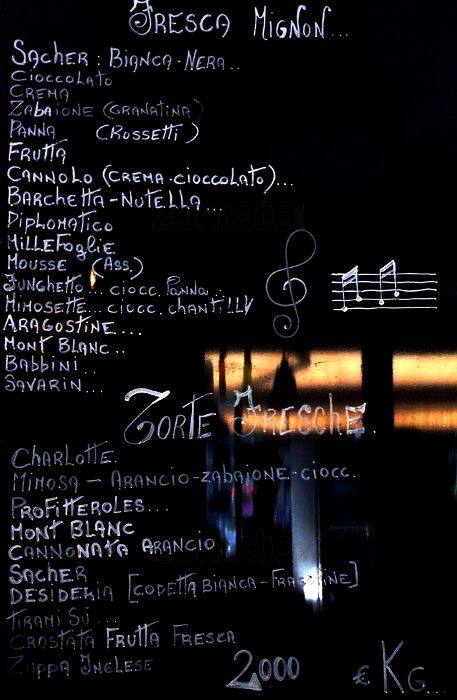 Fresca Mignon...
Sacher: Bianca-Nera..
Cioccolato
Crema
Zabaione (Granatina)
Panna (Rossetti)
Frutta
Cannolo (Crema-cioccolato)...
Barchetta-Nutella...
Diplomatico
Millefoglie
Mousse (Ass.)
Funghetto... ciocc. Panna..
Mimosette... ciocc. chantilly
Aragostine...
Mont Blanc..
Babbini..
Savarin...
Torte Fresche.
Charlotte.
Mimosa - Arancio-zabaione-ciocc.
Profitteroles...
Mont Blanc
Cannonata Arancio
Sacher
Desideria [codetta Bianca-Fragoline]
Tirami Sù...
Crostata Frutta Fresca
Zuppa Inglese
2,000 € Kg...
zomato